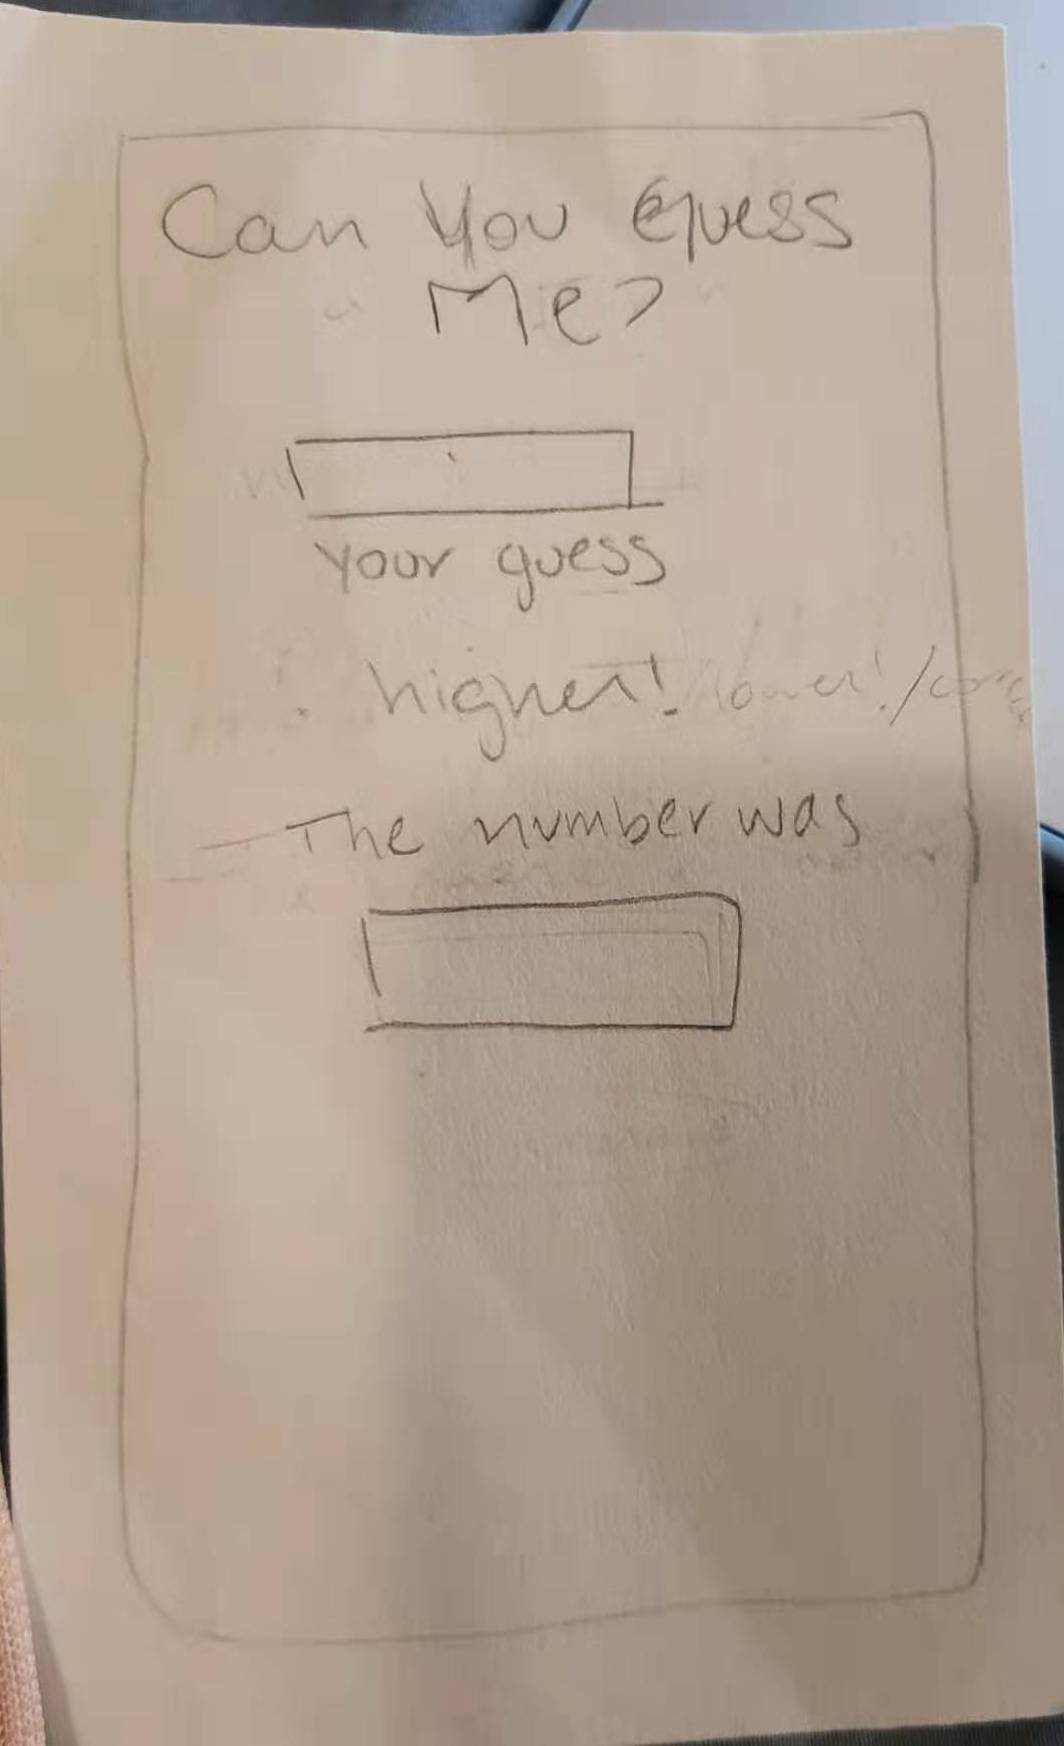 Can You Guess
Me?
Your guess
higher! lower! /
The number was